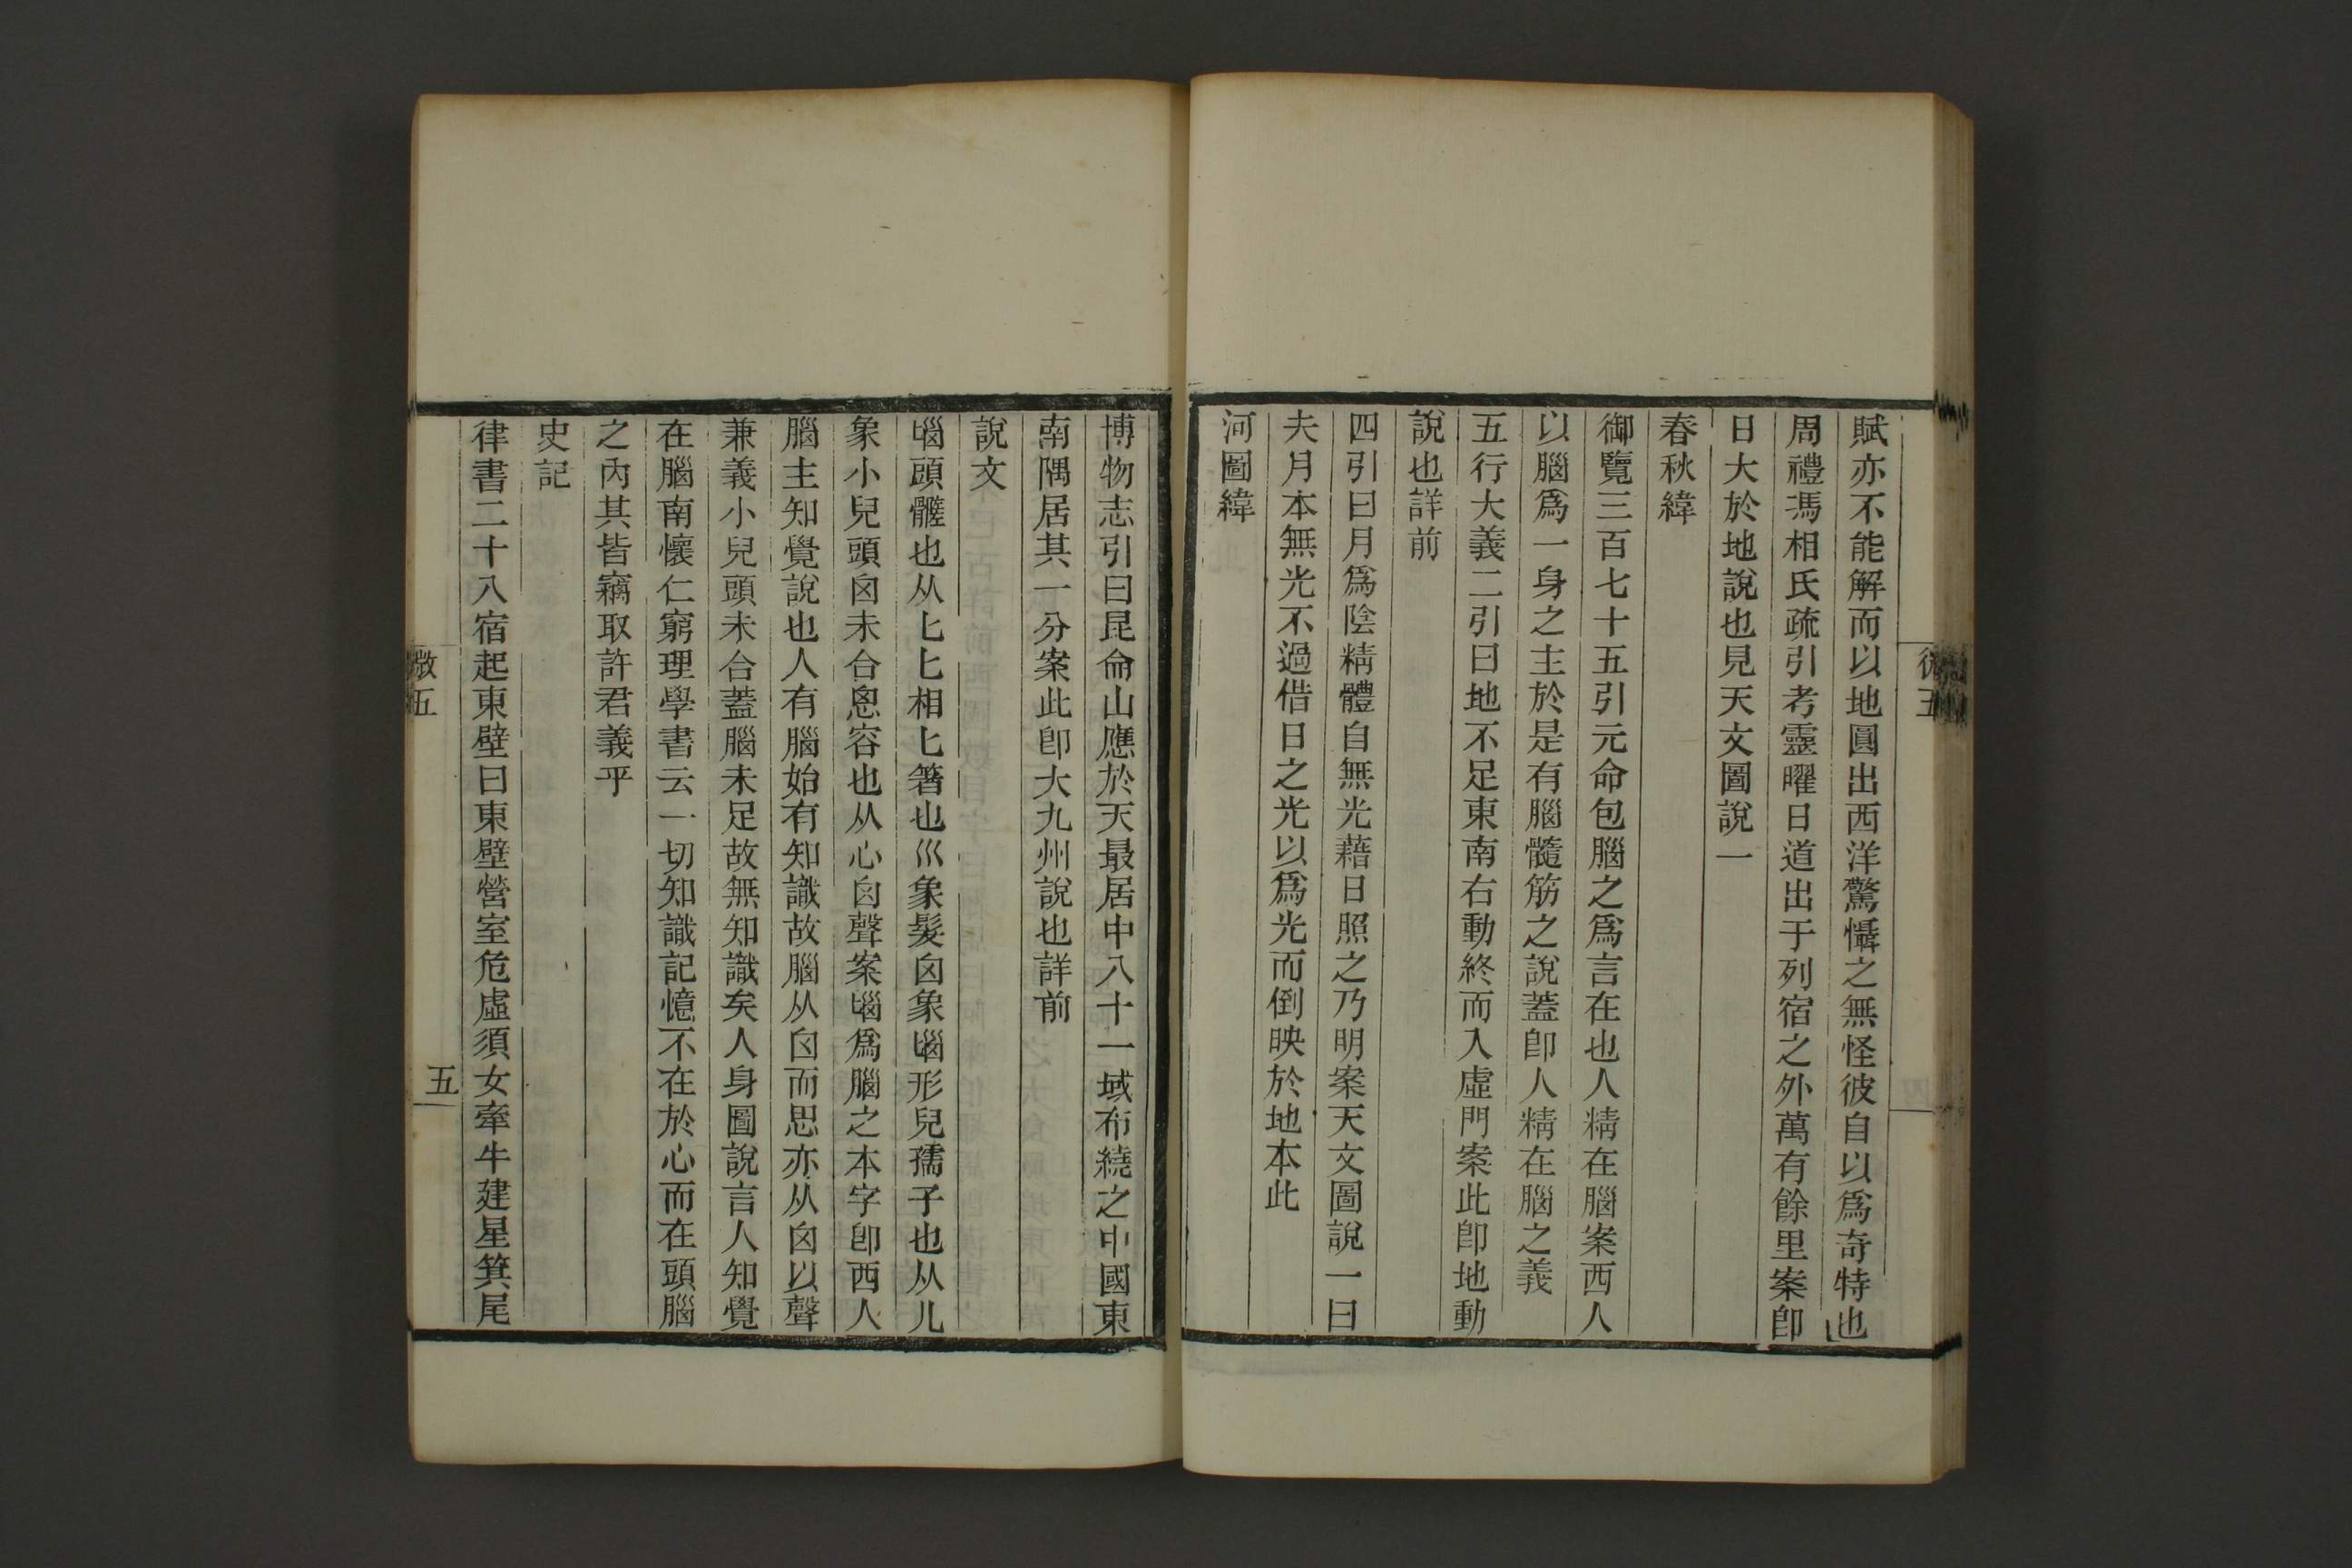 賦亦不能解而以地圓出西洋驚懾之無怪彼自以爲奇特也
周禮馮相氏疏引考靈曜日道出于列宿之外萬有餘里案卽
日大於地說也見天文圖說一
春秋緯
御覽三百七十五引元命包腦之爲言在也人精在腦案西人
以腦爲一身之主於是有腦髓筋之說蓋卽人精在腦之義
五行大義二引曰地不足東南右動終而入虛門案此卽地動
說也詳前
四引曰月爲陰精體自無光藉日照之乃明案天文圖說一曰
夫月本無光不過借日之光以爲光而倒映於地本此
河圖緯
博物志引曰昆侖山應於天最居中八十一域布繞之中國東
南隅居其一分案此卽大九州說也詳前
說文
𡿺頭髓也从匕匕相匕著也巛象髮囟象𡿺形兒孺子也从儿
象小兒頭囟未合恖容也从心囟聲案𡿺爲腦之本字卽西人
腦主知覺說也人有腦始有知識故腦从囟而思亦从囟以聲
兼義小兒頭未合蓋腦未足故無知識矣人身圖說言人知覺
在腦南懷仁窮理學書云一切知識記憶不在於心而在頭腦
之內其皆竊取許君義乎
史記
律書二十八宿起東壁曰東壁營室危虛須女牽牛建星箕尾
五